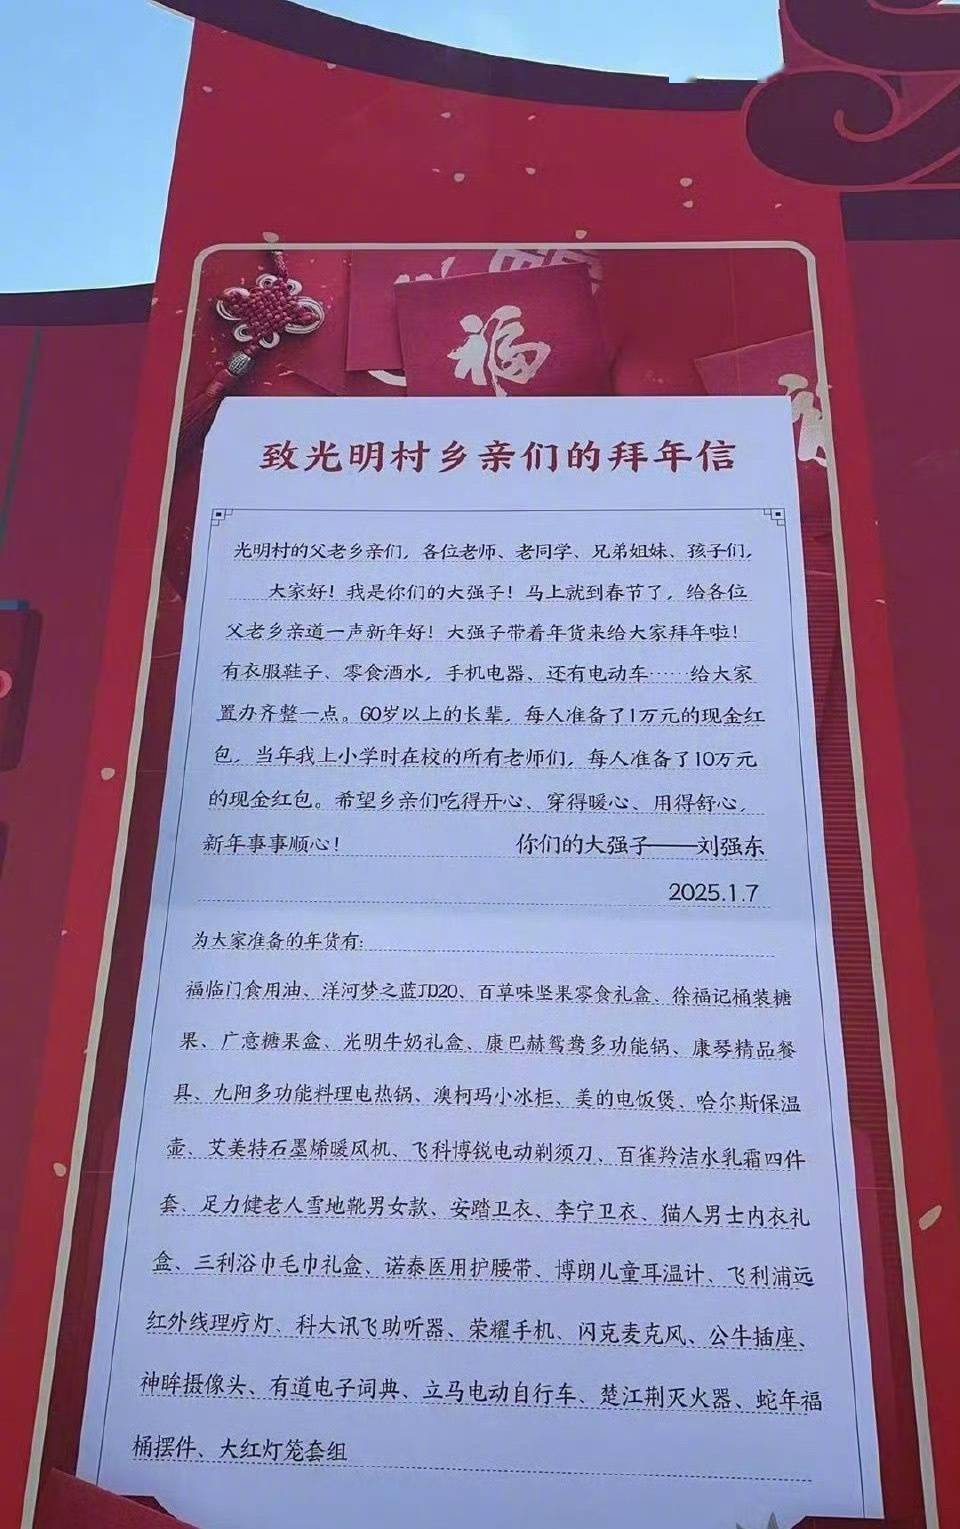 福
福
致光明村乡亲们的拜年信
光明村的父老乡亲们，各位老师、老同学、兄弟姐妹、孩子们，
大家好！我是你们的大强子！马上就到春节了，给各位
父老乡亲道一声新年好！大强子带着年货来给大家拜年啦！
有衣服鞋子、零食酒水，手机电器、还有电动车……给大家
置办齐整一点。60岁以上的长辈，每人准备了1万元的现金红
包，当年我上小学时在校的所有老师们，每人准备了10万元
的现金红包。希望乡亲们吃得开心、穿得暖心、用得舒心，
新年事事顺心！ 你们的大强子——刘强东
2025.1.7
为大家准备的年货有:
福临门食用油、洋河梦之蓝JD20、百草味坚果零食礼盒、徐福记桶装糖
果、广意糖果盒、光明牛奶礼盒、康巴赫鸳鸯多功能锅、康琴精品餐
具、九阳多功能料理电热锅、澳柯玛小冰柜、美的电饭煲、哈尔斯保温
壶、艾美特石墨烯暖风机、飞科博锐电动剃须刀、百雀羚洁水乳霜四件
套、足力健老人雪地靴男女款、安踏卫衣、李宁卫衣、猫人男士内衣礼
盒、三利浴巾毛巾礼盒、诺泰医用护腰带、博朗儿童耳温计、飞利浦远
红外线理疗灯、科大讯飞助听器、荣耀手机、闪克麦克风、公牛插座、
神眸摄像头、有道电子词典、立马电动自行车、楚江荆灭火器、蛇年福
桶摆件、大红灯笼套组